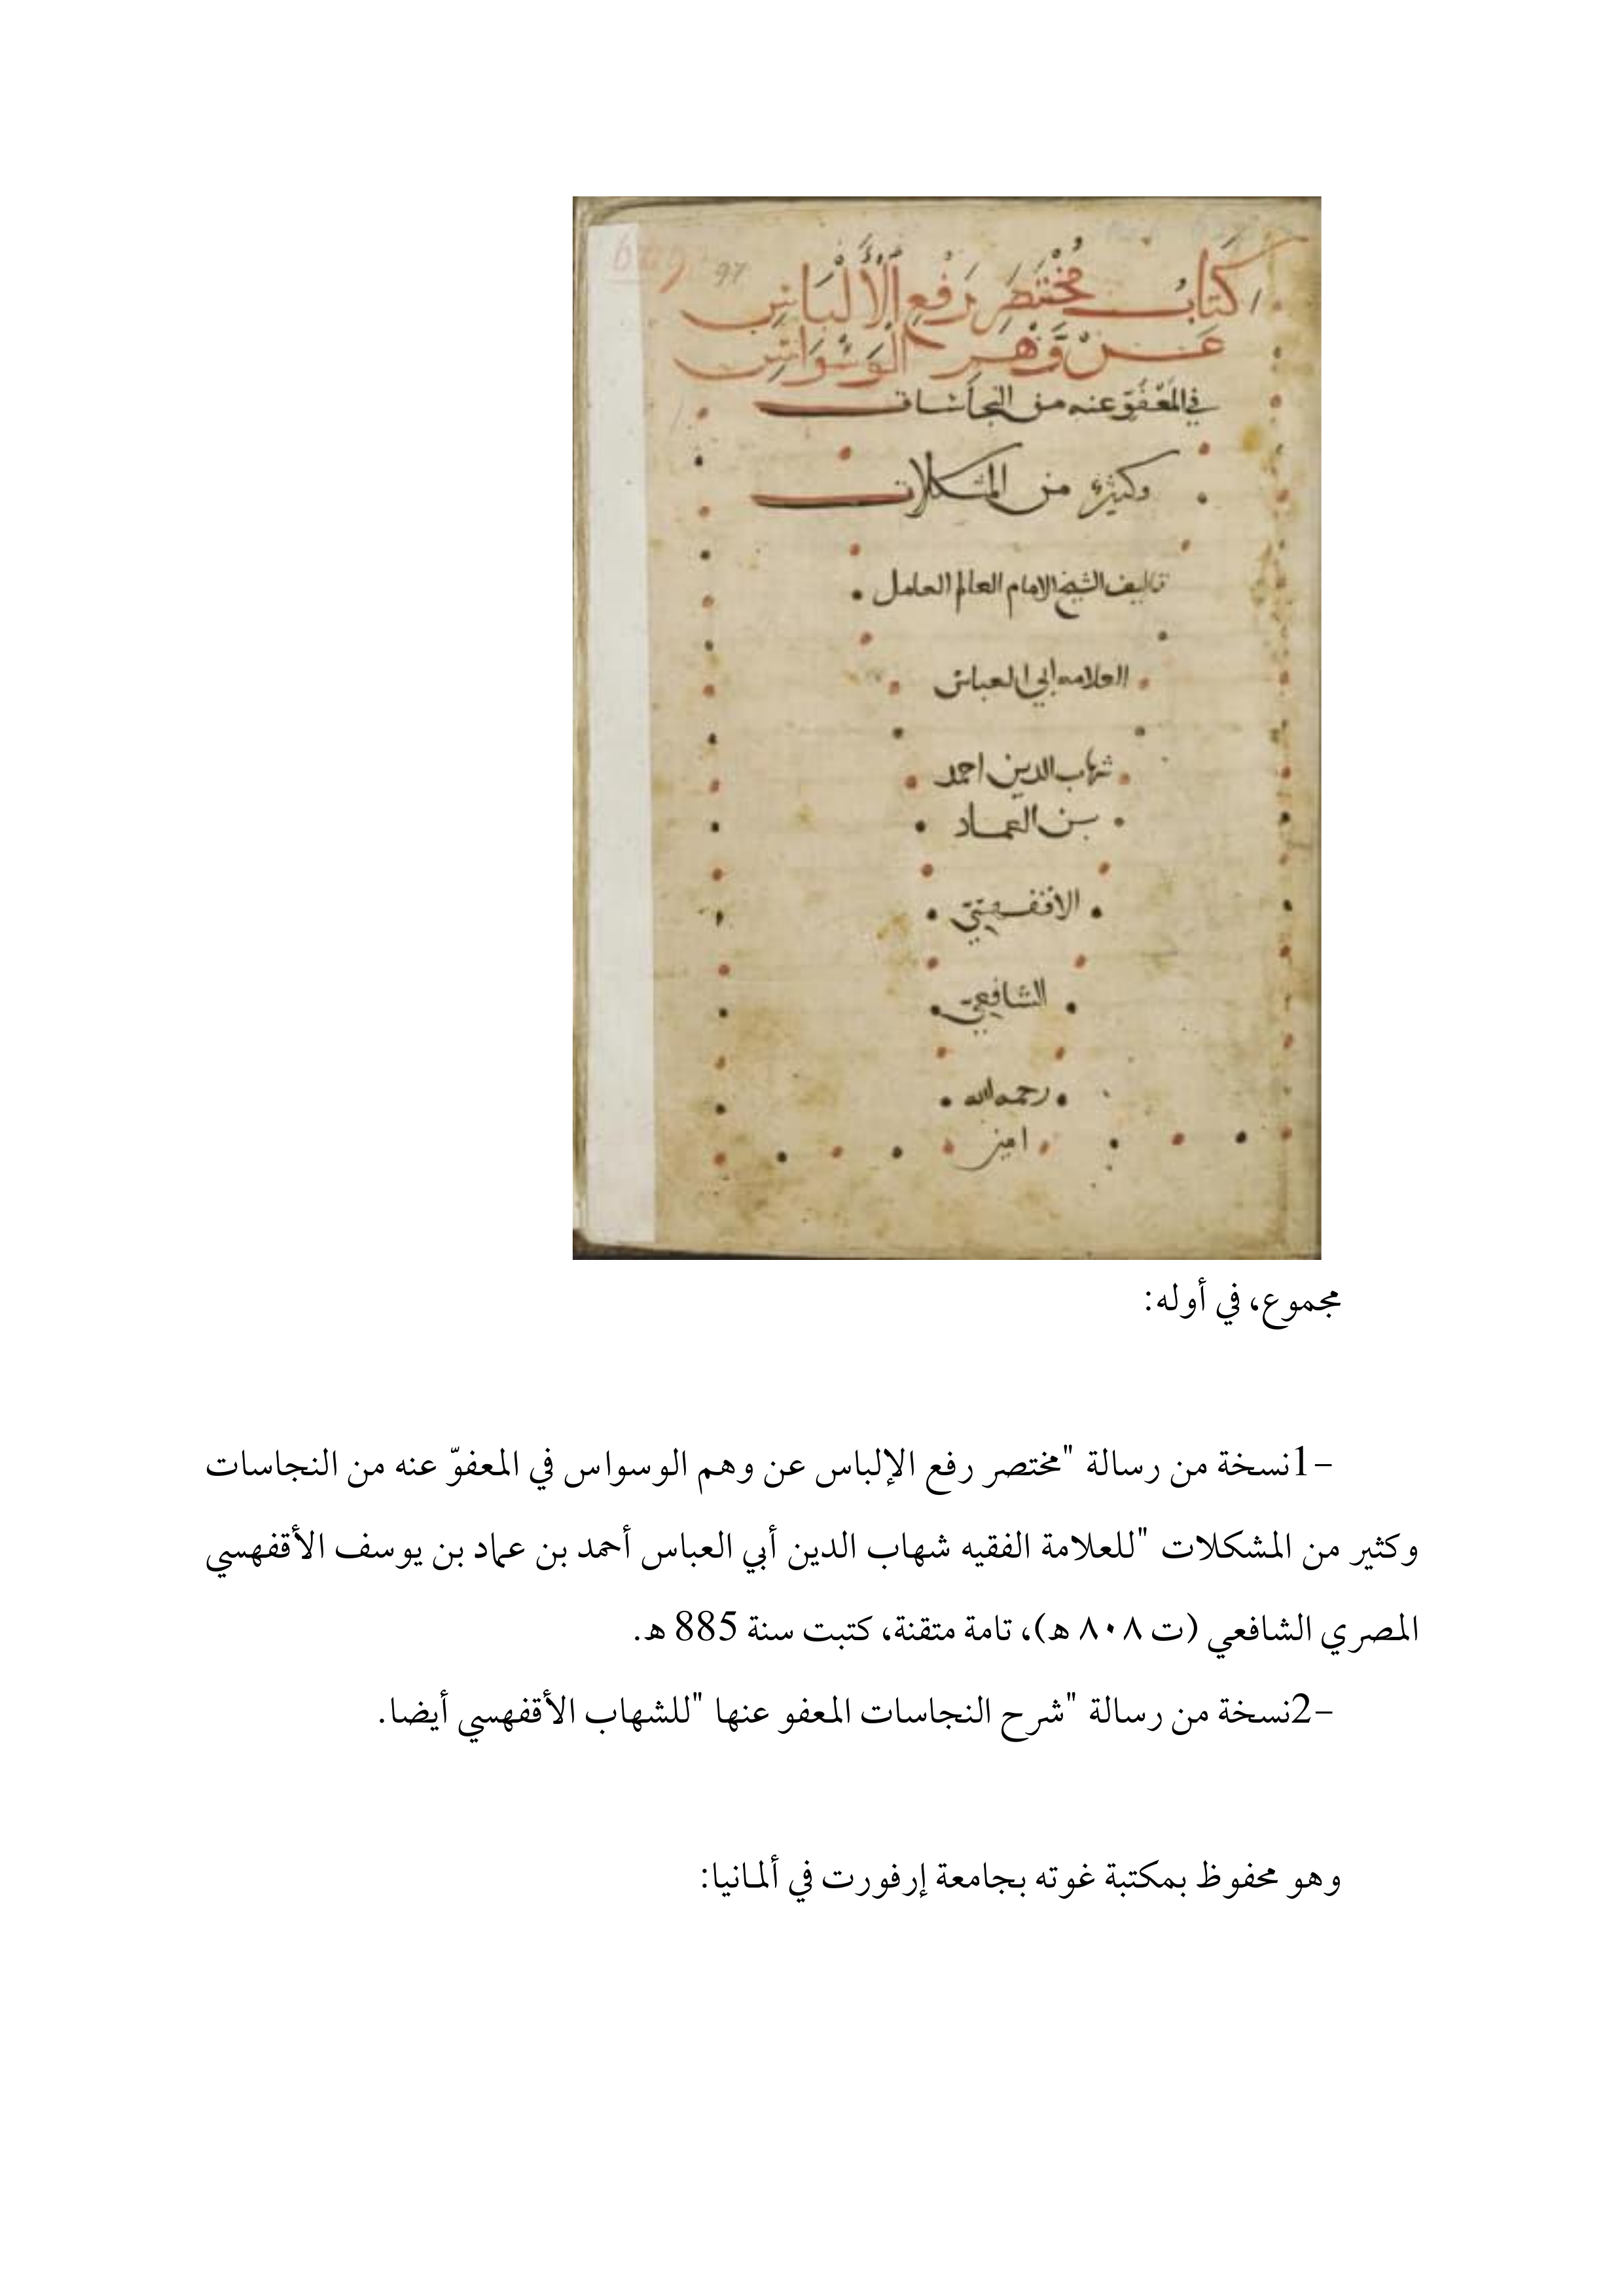 كتاب مختصر رفع الألباس
عن وهم الوسواس
في المعفوّ عنه من النجاسات
وكثير من المشكلات
تاليف الشيخ الامام العالم العامل
العلامه ابي العباس
شهاب الدين احمد
بن العماد
الاقفهسي
الشافعي
رحمه الله
امين
مجموع، في أوله:
-1نسخة من رسالة "مختصر رفع الإلباس عن وهم الوسواس في المعفوّ عنه من النجاسات
وكثير من المشكلات "للعلامة الفقيه شهاب الدين أبي العباس أحمد بن عماد بن يوسف الأقفهسي
المصري الشافعي (ت ٨٠٨ هـ)، تامة متقنة، كتبت سنة 885 هـ.
-2نسخة من رسالة "شرح النجاسات المعفو عنها "للشهاب الأقفهسي أيضا.
وهو محفوظ بمكتبة غوته بجامعة إرفورت في ألمانيا: